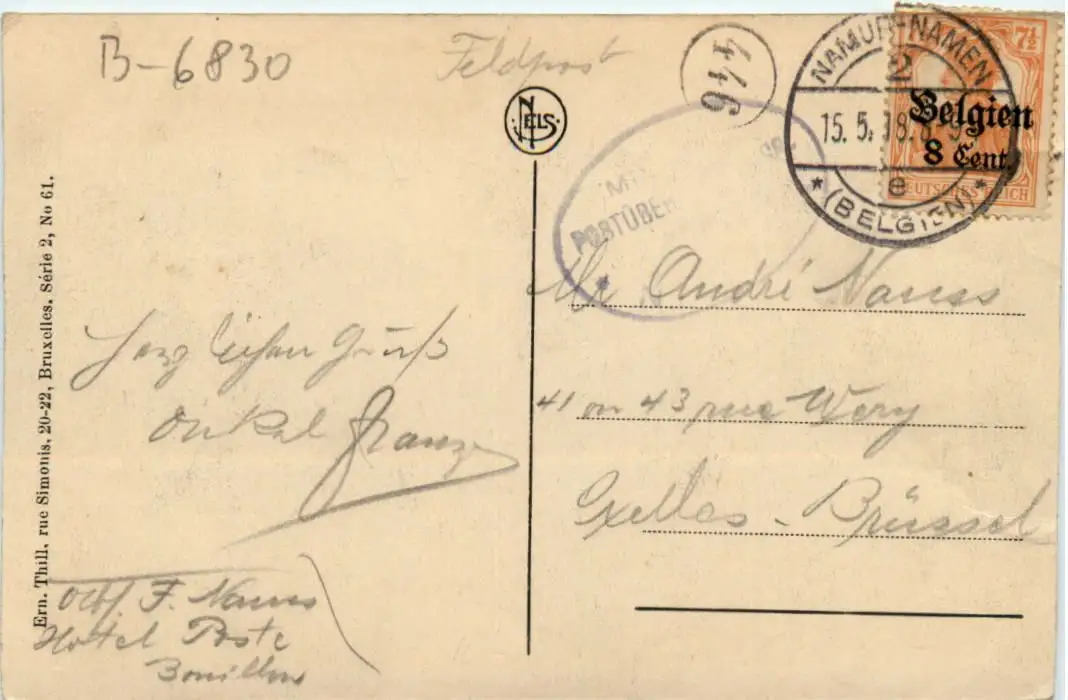 B-6830
Feldpost
446
NAMUR-NAMEN
2
15. 5. 18. 8-9
e
* (BELGIEN) *
7½
Belgien
8 Cent.
DEUTSCHES REICH
NELS
POSTÜBER
Mr André Nauss
41 ou 43 rue Wery
Ixelles - Brüssel
Herzlichen Gruß
Onkel Franz
F. Nauss
Hotel Poste
Bouillon
Ern. Thill, rue Simonis, 20-22, Bruxelles. Série 2, No 61.